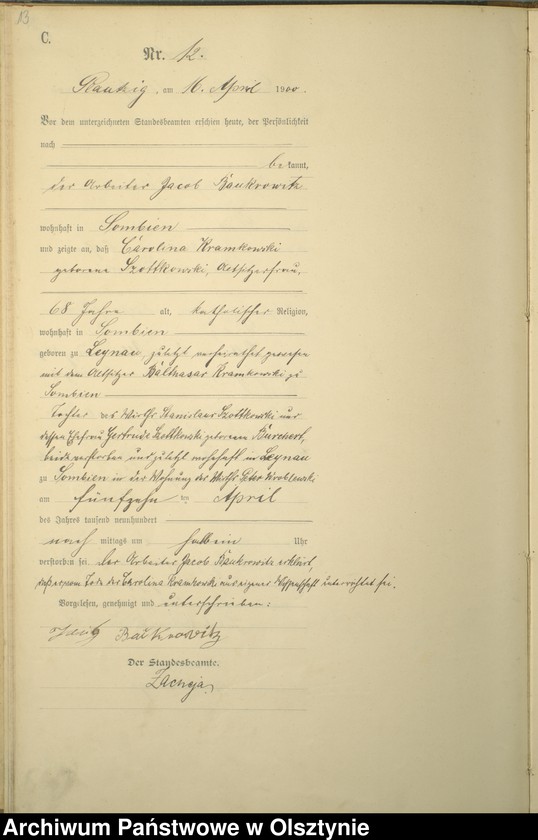 13
C.
Nr. 12.
am 16. April 1900.
Vor dem unterzeichneten Standesbeamten erschien heute, der Persönlichkeit
nach
be kannt,
der Arbeiter Jacob Baukrowitz
wohnhaft in Sombien
und zeigte an, daß Carolina Kramkowski
geborene Szottkowski, Altsitzerfrau,
68 Jahre alt, katholischer Religion,
wohnhaft in Sombien
geboren zu Leynau, zuletzt verheirathet gewesen
mit dem Altsitzer Balthasar Kramkowski zu
Sombien
Tochter des Wirths Stanislaus Szottkowski und
dessen Ehefrau Gertrude Szottkowski geborene Burchert,
beide verstorben und zuletzt wohnhaft in Leynau
zu Sombien in der Wohnung des Wirths Peter Wroblewski
am fünfzehn ten April
des Jahres tausend neunhundert
nach mittags um halb ein Uhr
verstorben sei. Der Arbeiter Jacob Baukrowitz erklärt,
daß er vom Tode der Carolina Kramkowski aus eigener Wissenschaft unterrichtet sei.
Vorgelesen, genehmigt und unterschrieben:
Der Standesbeamte.
Archiwum Państwowe w Olsztynie